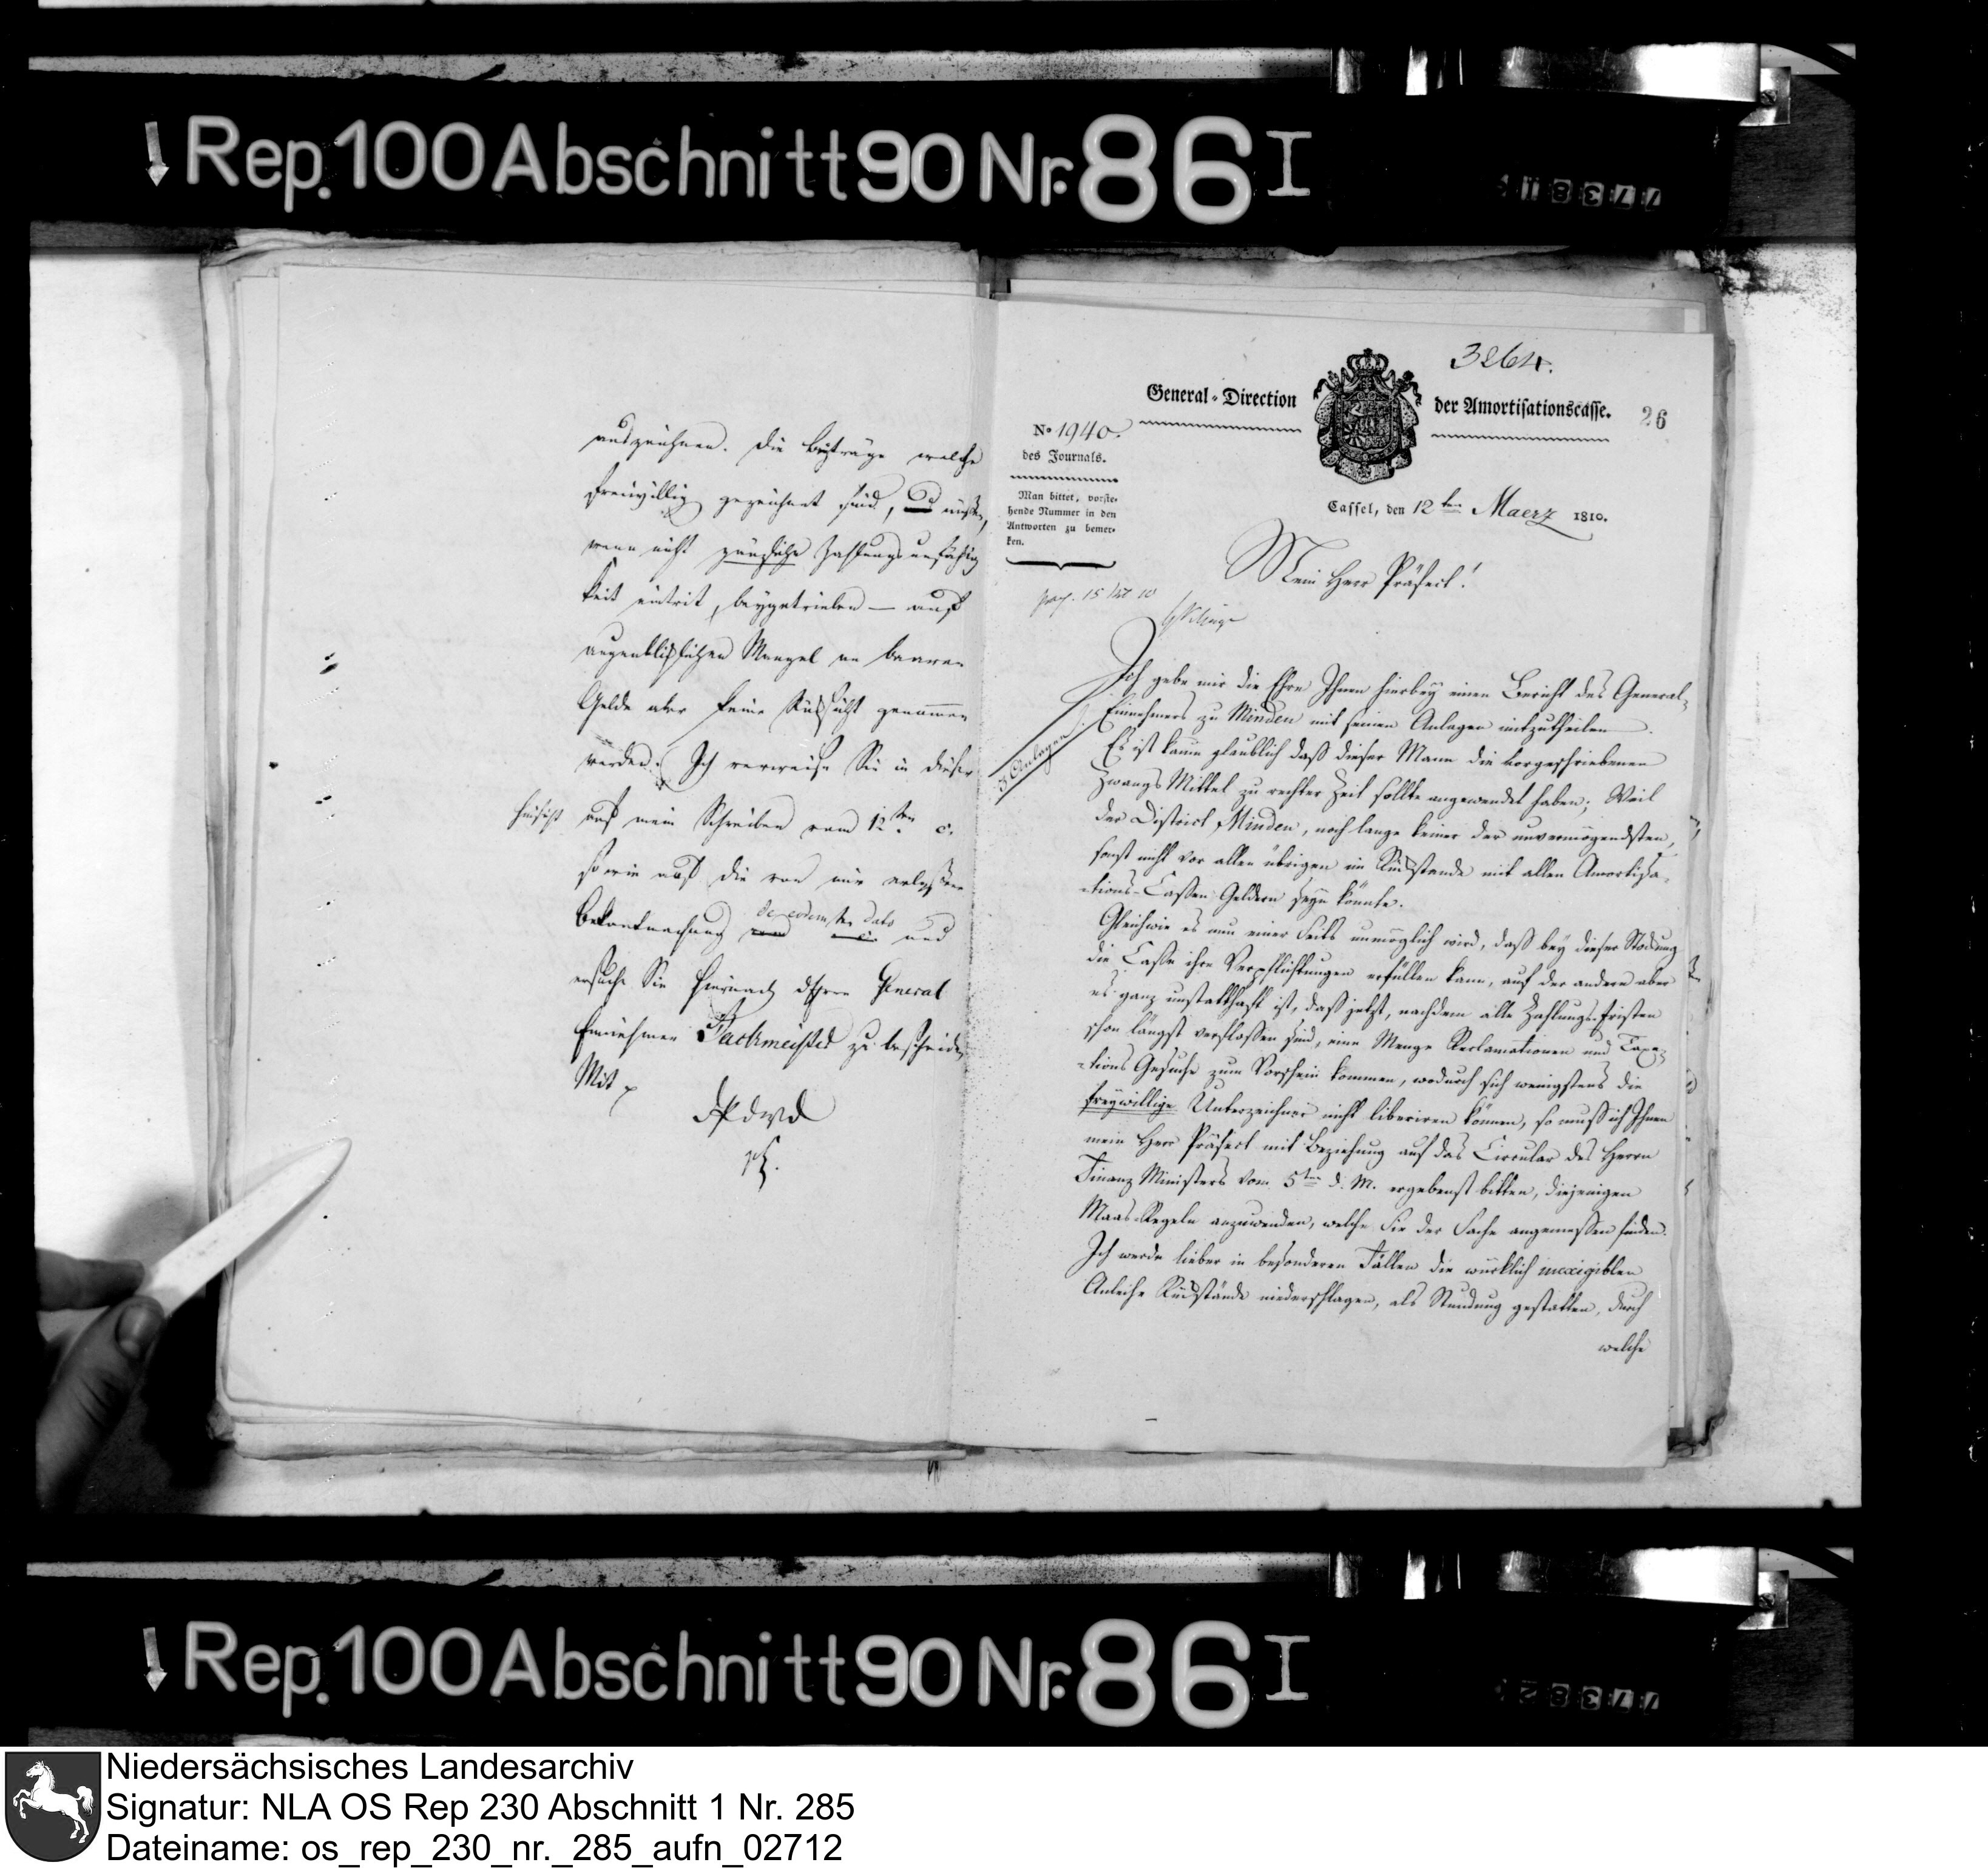 Rep. 100 Abschnitt 90 Nr. 86 I
auszeichnen. Die Beyträge welche
freiwillig gezeichnet sind, müssen,
wenn nicht gänzliche Zahlungsunfähig
keit eintrit, beygetrieben — auf
augenblicklichen Mangel an baaren
Gelde aber keine Rücksicht genommen
werden. Ich verweise Sie in dieser
Hinsicht auf mein Schreiben vom 12ten c.
so wie auf die von mir erlassene
Bekantmachung de eodem dato und
ersuche Sie hiernach Ihren General
Einnehmer Backmeister zu bescheiden
Mit
3264.
General-Direction der Amortisationscasse.
26
No 1940.
des Journals.
Man bittet, vorste-
hende Nummer in den
Antworten zu bemer-
ken.
Cassel, den 12ten Maerz 1810.
Mein Herr Präfect!
3 Anlagen
Ich gebe mir die Ehre Ihnen hierbey einen Bericht des General-
Einnehmers zu Minden mit seinen Anlagen mitzutheilen.
Es ist kaum glaublich daß dieser Mann die vorgeschriebenen
Zwangs Mittel zu rechter Zeit sollte angewendet haben; Weil
der District Minden, noch lange keiner der unvermögendsten,
sonst nicht vor allen übrigen im Rückstande mit allen Amortisa-
tions-Cassen Geldern seyn könnte.
Gleichwie es nun einer Seits unmöglich wird, daß bey dieser Stockung
die Casse ihre Verpflichtungen erfüllen kann, auf der andern aber
es ganz unstatthaft ist, daß jetzt, nachdem alle Zahlungs-Fristen
schon längst verflossen sind, eine Menge Reclamationen und Taxa-
tions Gesuche zum Vorschein kommen, wodurch sich wenigstens die
freywillige Unterzeichner nicht liberiren können, so muß ich Ihnen
mein Herr Präfect mit Beziehung auf das Circular des Herrn
Finanz Ministers vom 5ten d. M. ergebenst bitten, diejenigen
Maas-Regeln anzuwenden, welche Sie der Sache angemessen finden.
Ich werde lieber in besonderen Fällen die würklich inexigiblen
Anleihe Rückstände niederschlagen, als Stundung gestatten, durch
welche
Rep. 100 Abschnitt 90 Nr. 86 I
Niedersächsisches Landesarchiv
Signatur: NLA OS Rep 230 Abschnitt 1 Nr. 285
Dateiname: os_rep_230_nr._285_aufn_02712